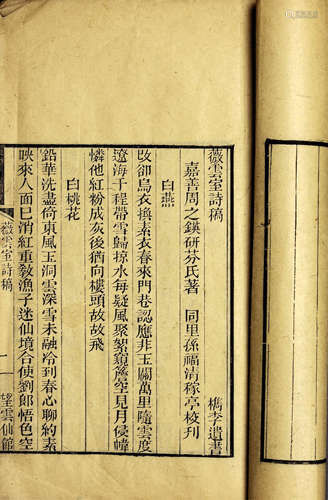 薇雲室詩稿　檇李遺書
嘉善周之鍈研芬氏著　同里孫福清稼亭校刊
白燕
改卻烏衣換素衣春來門巷認應非玉關萬里隨雲度
遼海千程帶雪歸掠水每疑風聚絮窺簾空見月侵幃
憐他紅粉成灰後猶向樓頭故故飛
白桃花
鉛華洗盡倚東風玉洞雲深雪未融冷到春心聊約素
映來人面已消紅重教漁子迷仙境合使劉郎悟色空
薇雲室詩稿　一　望雲仙館